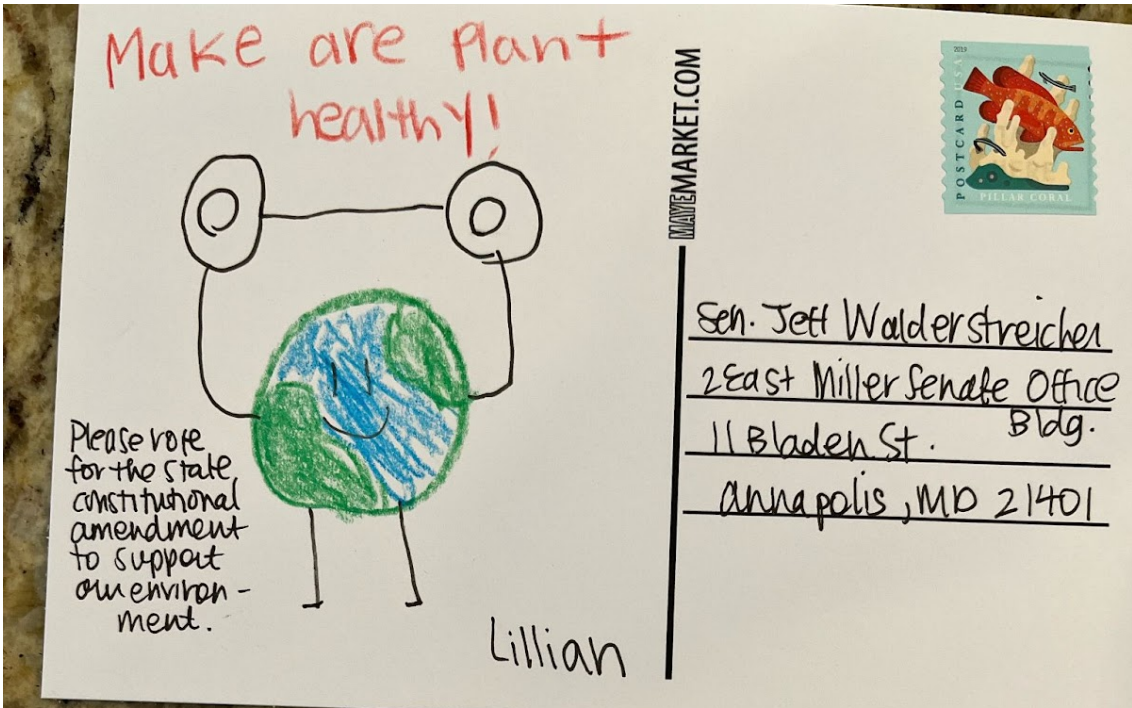 Make are plant
healthy!
Please vote
for the state
constitutional
amendment
to support
our environ-
ment.
Lillian
MAYEMARKET.COM
2019
POSTCARD USA
PILLAR CORAL
Sen. Jeff Walderstreicher
2 East Miller Senate Office
Bldg.
11 Bladen St.
Annapolis, MD 21401